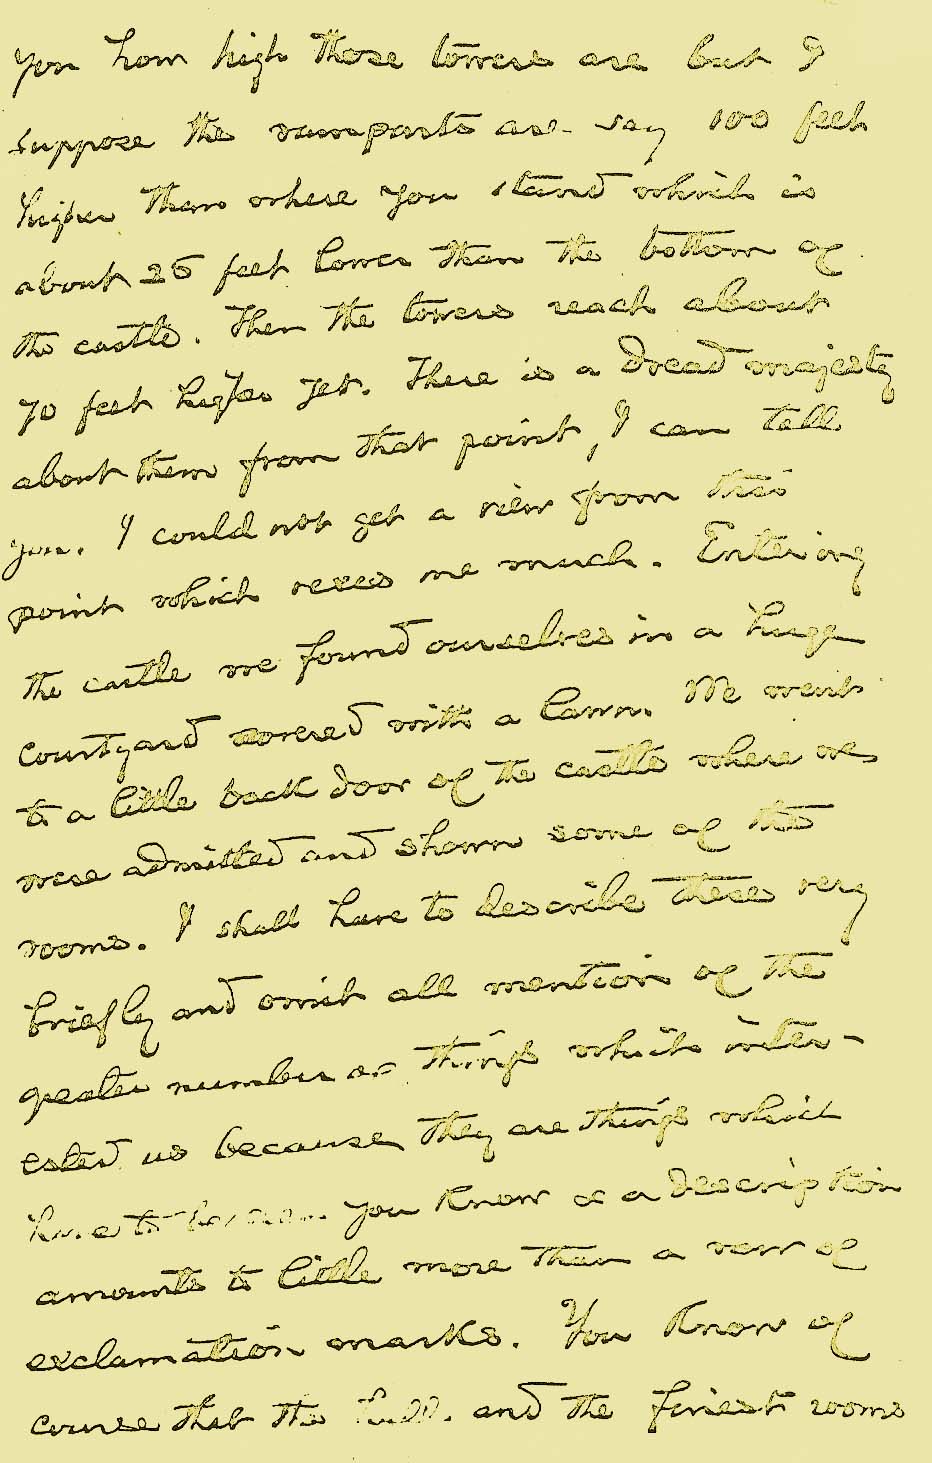 you how high those towers are but I
suppose the ramparts are say 100 feet
higher than where you stand which is
about 25 feet lower than the bottom of
the castle. Then the towers reach about
70 feet higher yet. There is a dread majesty
about them from that point, I can tell
you. I could not get a view from this
point which vexes me much. Entering
the castle we found ourselves in a huge
courtyard covered with a lawn. We went
to a little back door of the castle where we
were admitted and shown some of the
rooms. I shall have to describe these very
briefly and omit all mention of the
greater number of things which inter-
ested us because they are things which
have to be seen. You know a description
amounts to little more than a row of
exclamation marks. You know of
course that the hall and the finest rooms